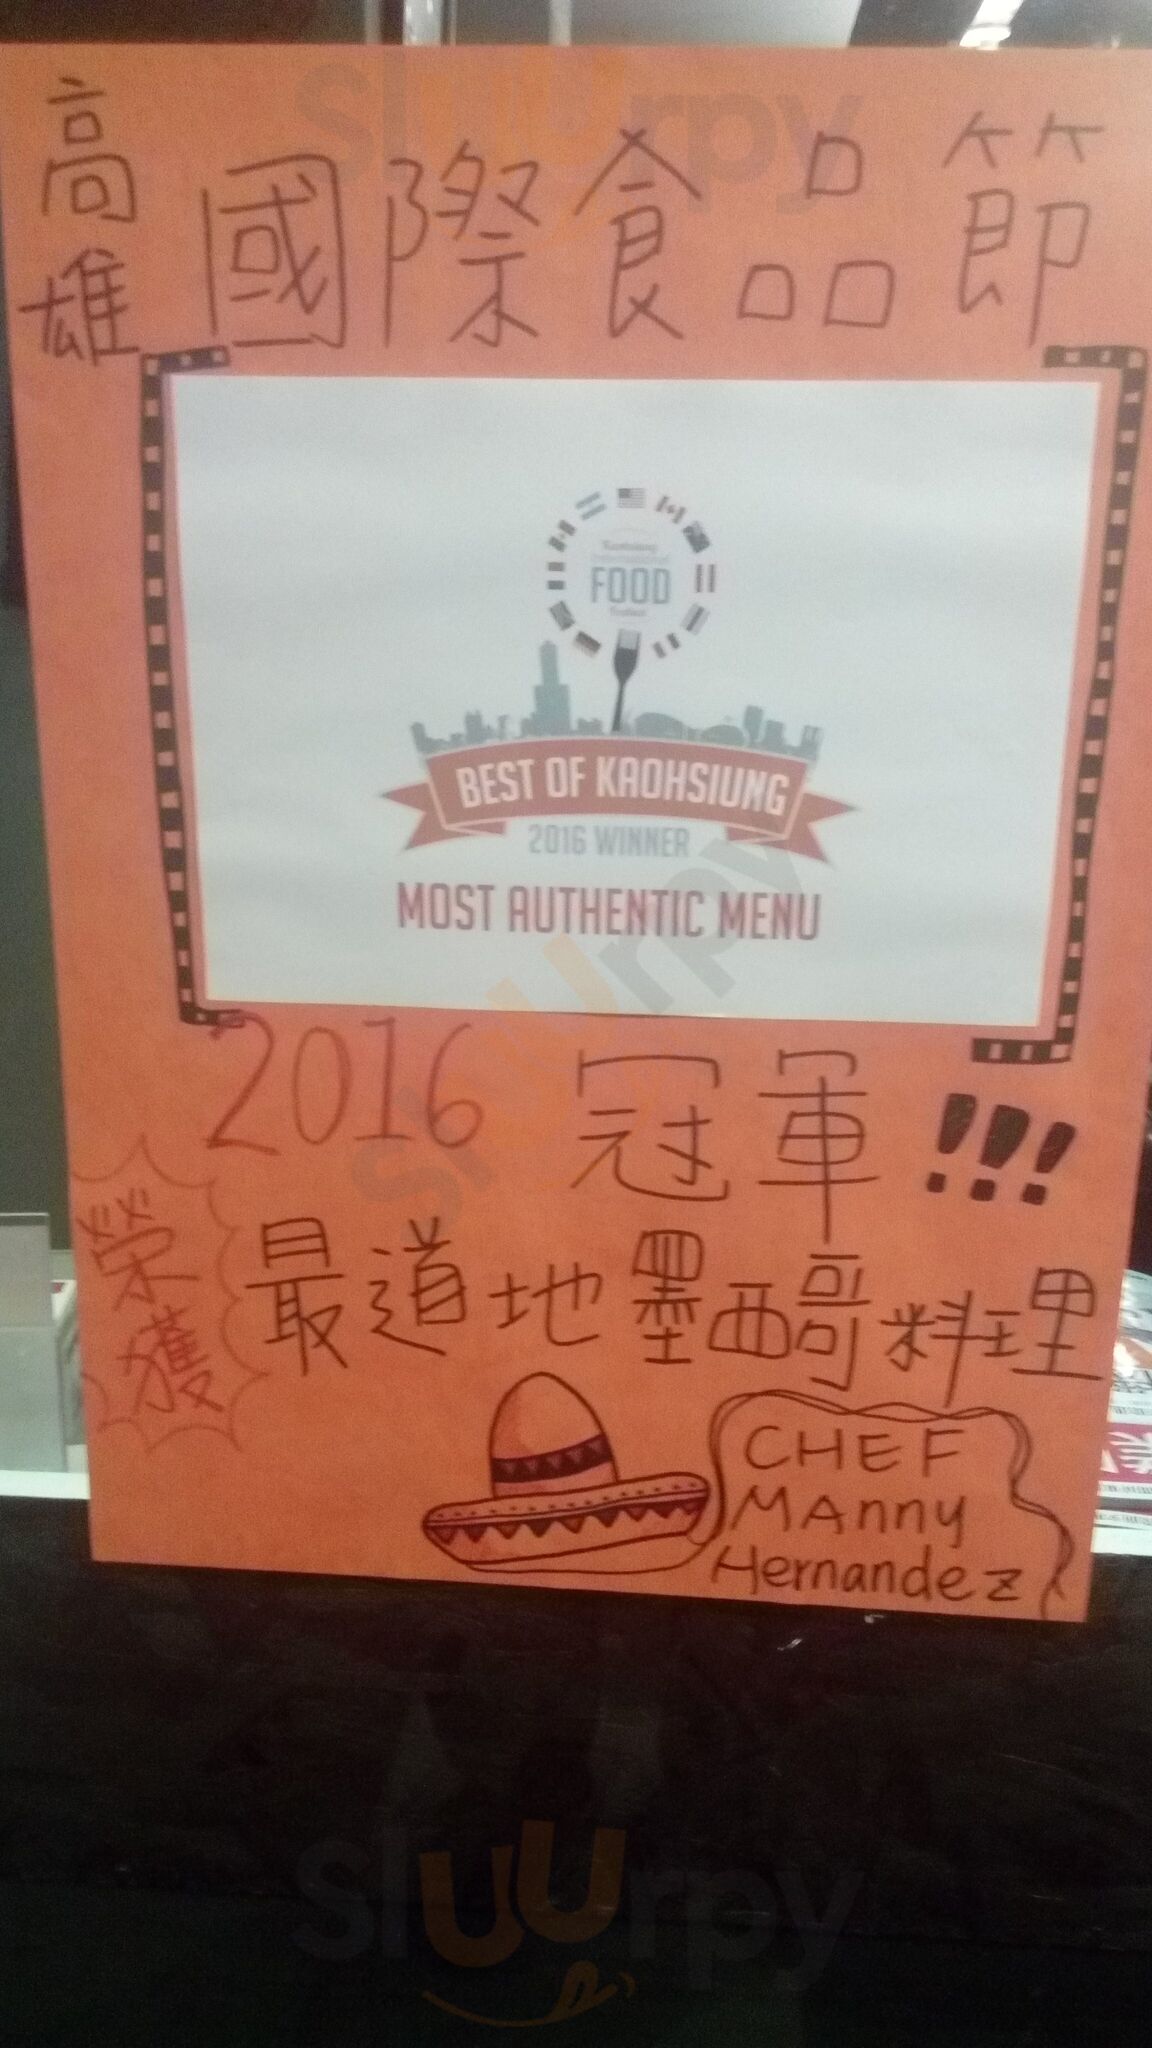 高雄
國際食品節
Kaohsiung
International
FOOD
Festival
BEST OF KAOHSIUNG
2016 WINNER
MOST AUTHENTIC MENU
2016 冠軍!!!
榮獲
最道地墨西哥料理
CHEF
MAnny
Hernandez
sluurpy
sluurpy
sluurpy